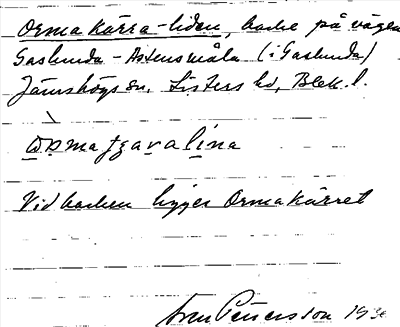 Ormakärra-liden, backe på vägen
Gaslunda - Astensmåla (i Gaslunda)
Jämshögs sn. Listers hd, Blek. l.
Vid backen ligger Ormakärret
Sven Petersson 193